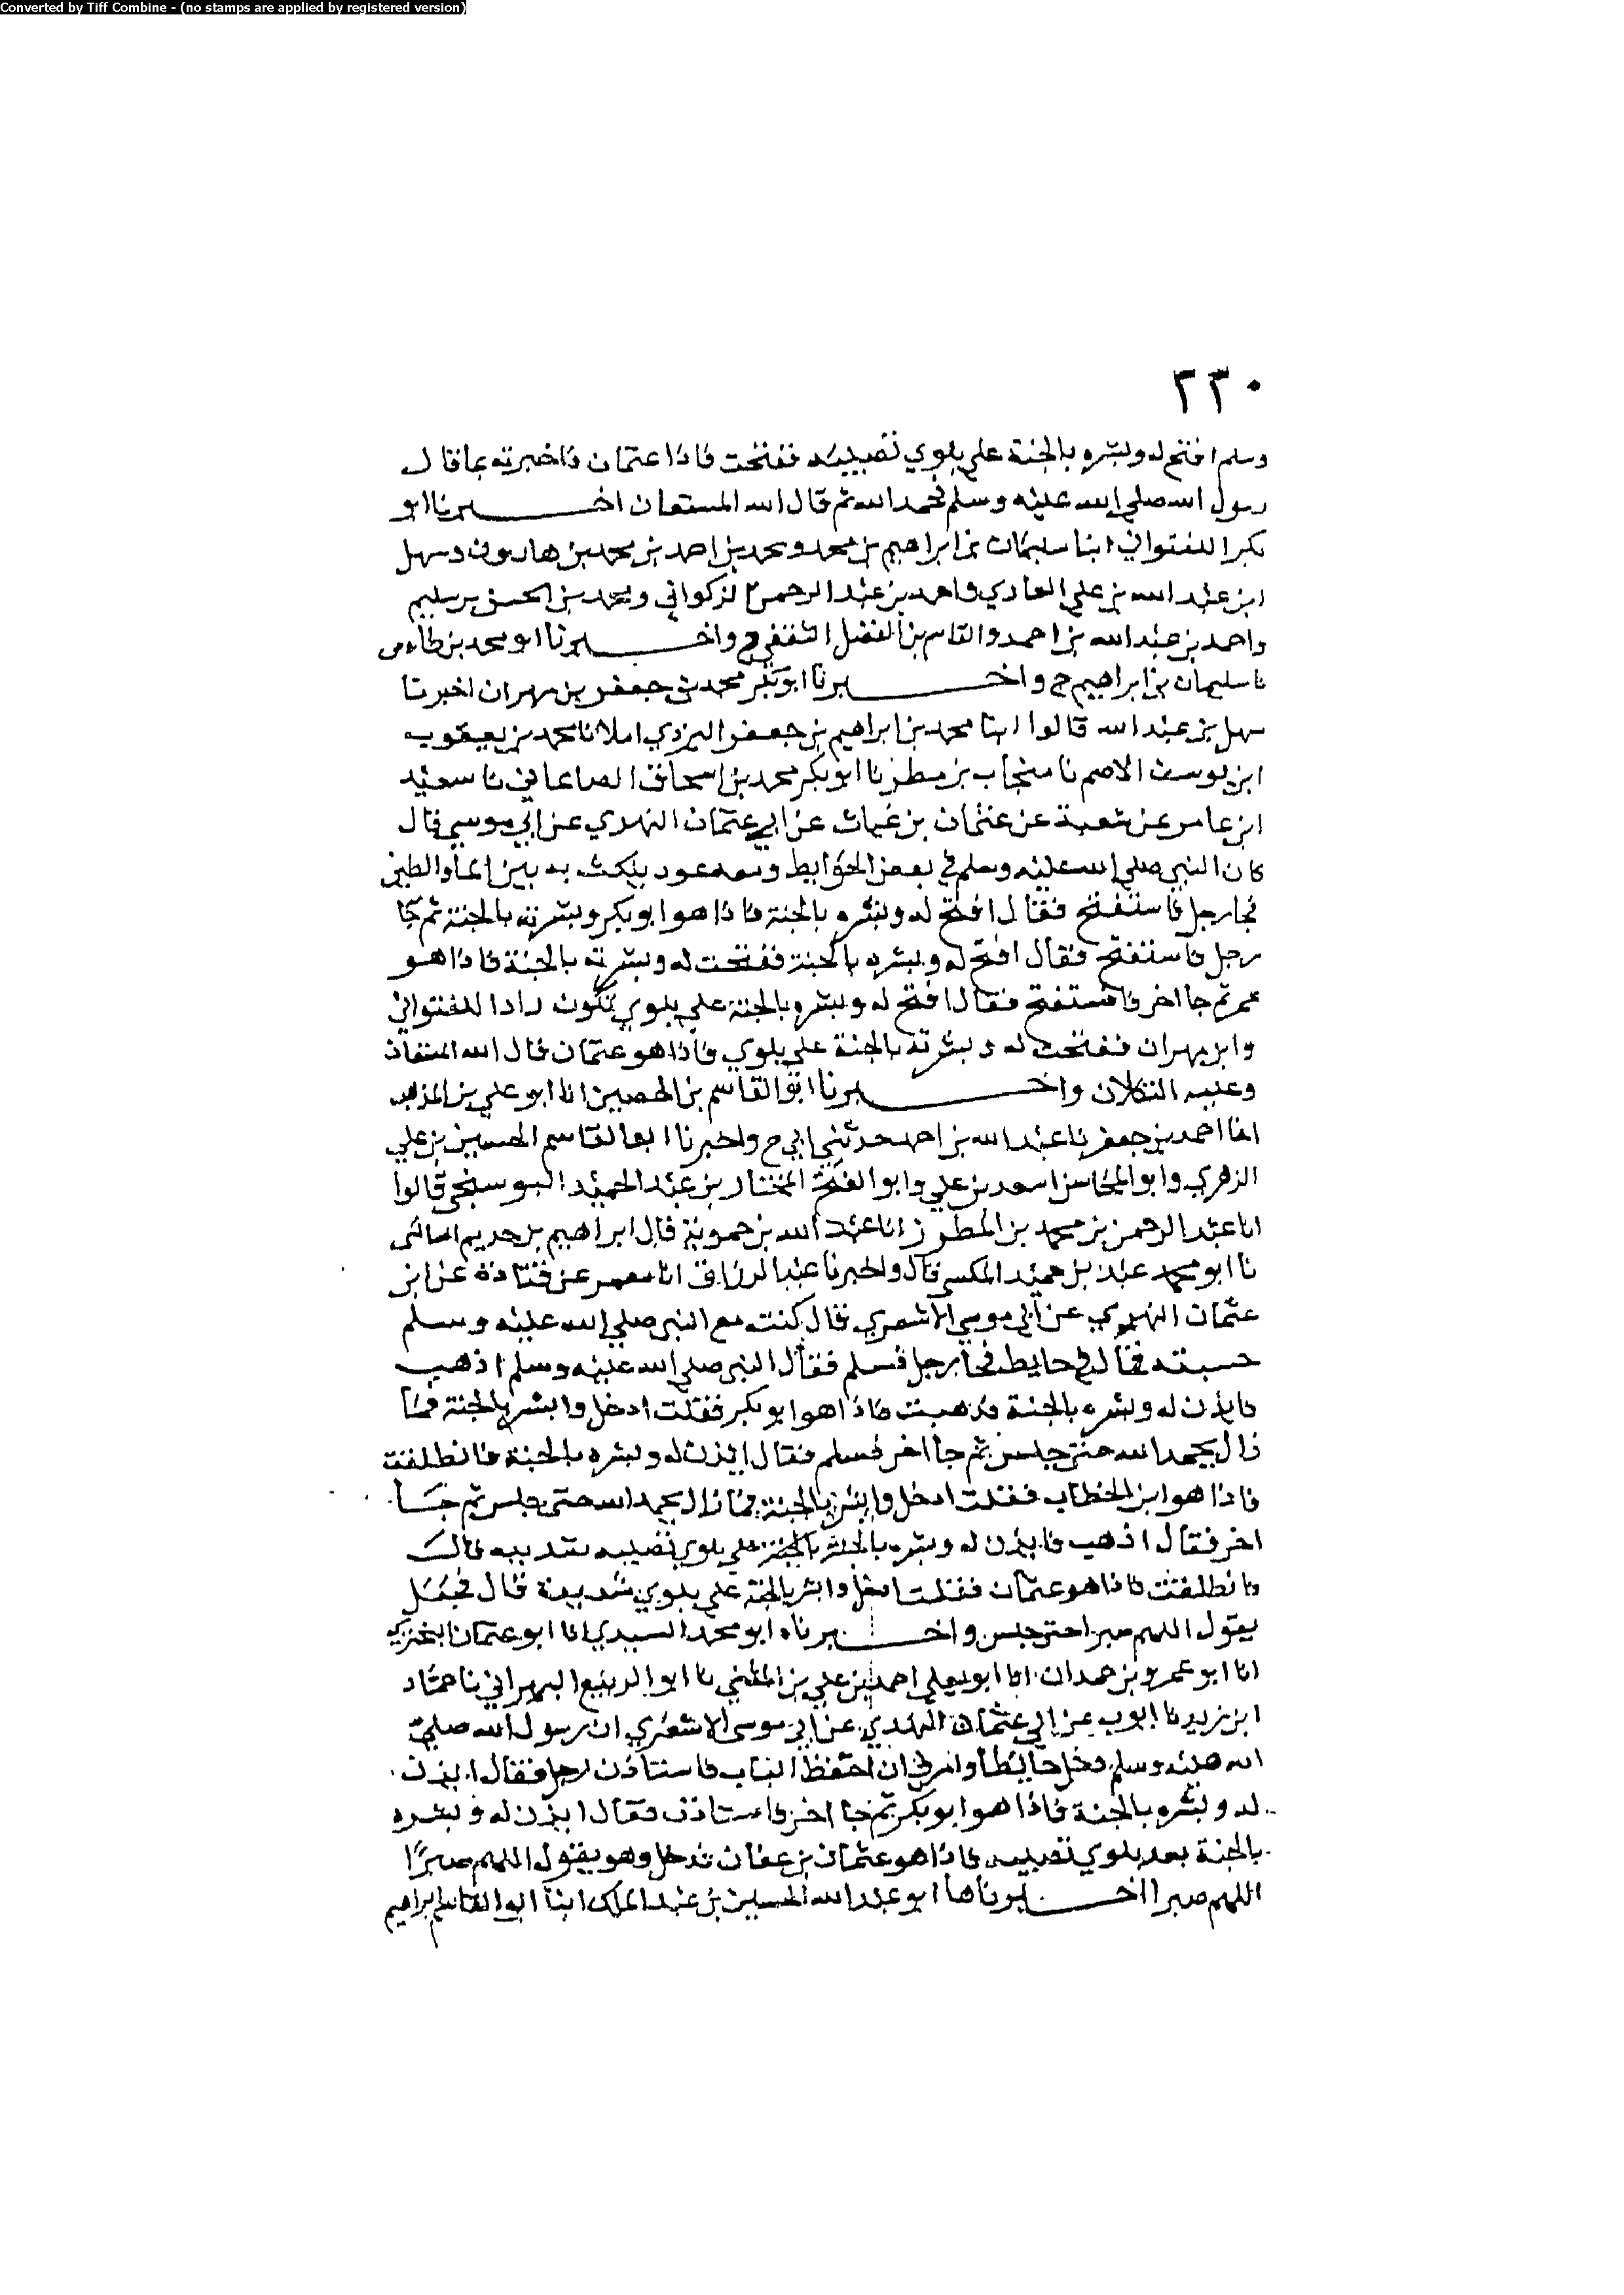 Converted by Tiff Combine - (no stamps are applied by registered version)
٢٣٠
وسلم افتح له وبشره بالجنة على بلوي تصيبه ففتحت فاذا عثمان فاخبرته بما قال
رسول الله صلى الله عليه وسلم فحمد الله ثم قال الله المستعان اخبرنا ابو
بكر اللفتواني ابنا سليمان بن ابراهيم بن محمد ومحمد بن احمد بن محمد بن هارون وسهل
ابن عبد الله بن علي الغازي واحمد بن عبد الرحمن الذكواني ومحمد بن الحسن بن سليم
واحمد بن عبد الله بن احمد والقاسم بن الفضل الثقفي ح واخبرنا ابو محمد بن طاوس
نا سليمان بن ابراهيم ح واخبرنا ابو بكر محمد بن جعفر بن مهران اخبرنا
سهل بن عبد الله قالوا ابنا محمد بن ابراهيم بن جعفر اليزدي املا نا محمد بن يعقوب
ابن يوسف الاصم نا ابو بكر محمد بن اسحاق الصاغاني نا سعيد
ابن عامر عن شعبة عن عثمان بن غياث عن ابي عثمان النهدي عن ابي موسي قال
كان النبي صلى الله عليه وسلم في بعض الحوايط ومعه عود ينكث به بين الماء والطين
فجا رجل فاستفتح فقال افتح له وبشره بالجنة فاذا هو ابو بكر وبشرته بالجنة ثم جا
رجل فاستفتح فقال افتح له وبشره بالجنة ففتحت له وبشرته بالجنة فاذا هو
عمر ثم جا اخر فاستفتح فقال افتح له وبشره بالجنة على بلوي تكون زاد اللفتواني
وابن مهران ففتحت له وبشرته بالجنة على بلوي فاذا هو عثمان قال الله المستعان
وعليه التكلان واخبرنا ابو القاسم بن الحصين انا ابو علي بن المذهب
انا احمد بن جعفر نا عبد الله بن احمد حدثني ابي ح واخبرنا ابو القاسم الحسين بن علي
الزهري وابو المحاسن اسعد بن علي وابو الفتح المختار بن عبد الحميد البوسنجي قالوا
انا عبد الرحمن بن محمد بن المظفر انا عبد الله بن حموية قال ابراهيم بن خريم الشاشي
نا ابو محمد عبد بن حميد الكسي قال واخبرنا عبد الرزاق انا معمر عن قتادة عن ابي
عثمان النهدي عن ابي موسي الاشعري قال كنت مع النبي صلى الله عليه وسلم
حسبته قال في حايط فجا رجل فسلم فقال النبي صلى الله عليه وسلم اذهب
فايذن له وبشره بالجنة فذهبت فاذا هو ابو بكر فقلت ادخل وابشر بالجنة فما
زال يحمد الله حتى جلس ثم جا اخر فسلم فقال ايذن له وبشره بالجنة فانطلقت
فاذا هو ابن الخطاب فقلت ادخل وابشر بالجنة فما زال يحمد الله حتى جلس ثم جا
اخر فقال اذهب فايذن له وبشره بالجنة على بلوي تصيبه شديده قال
فانطلقت فاذا هو عثمان فقلت ادخل وابشر بالجنة على بلوي شديدة قال فجعل
يقول اللهم صبرا حتى جلس واخبرناه ابو محمد السيدي انا ابو عثمان البحيري
انا ابو عمرو بن حمدان انا ابو يعلى احمد بن علي بن المثنى نا ابو الربيع الزهراني نا حماد
ابن زيد نا ايوب عن ابي عثمان النهدي عن ابي موسى الاشعري ان رسول الله صلى
الله عليه وسلم دخل حايطا وامرني ان احفظ الباب فاستاذن رجل فقال ايذن
له وبشره بالجنة فاذا هو ابو بكر ثم جا اخر فاستاذن فقال ايذن له وبشره
بالجنة بعد بلوي تصيبه فاذا هو عثمان بن عفان فدخل وهو يقول اللهم صبرا
اللهم صبرا اخبرناها ابو عبد الله الحسين بن عبد الملك ابنا ابو القاسم ابراهيم